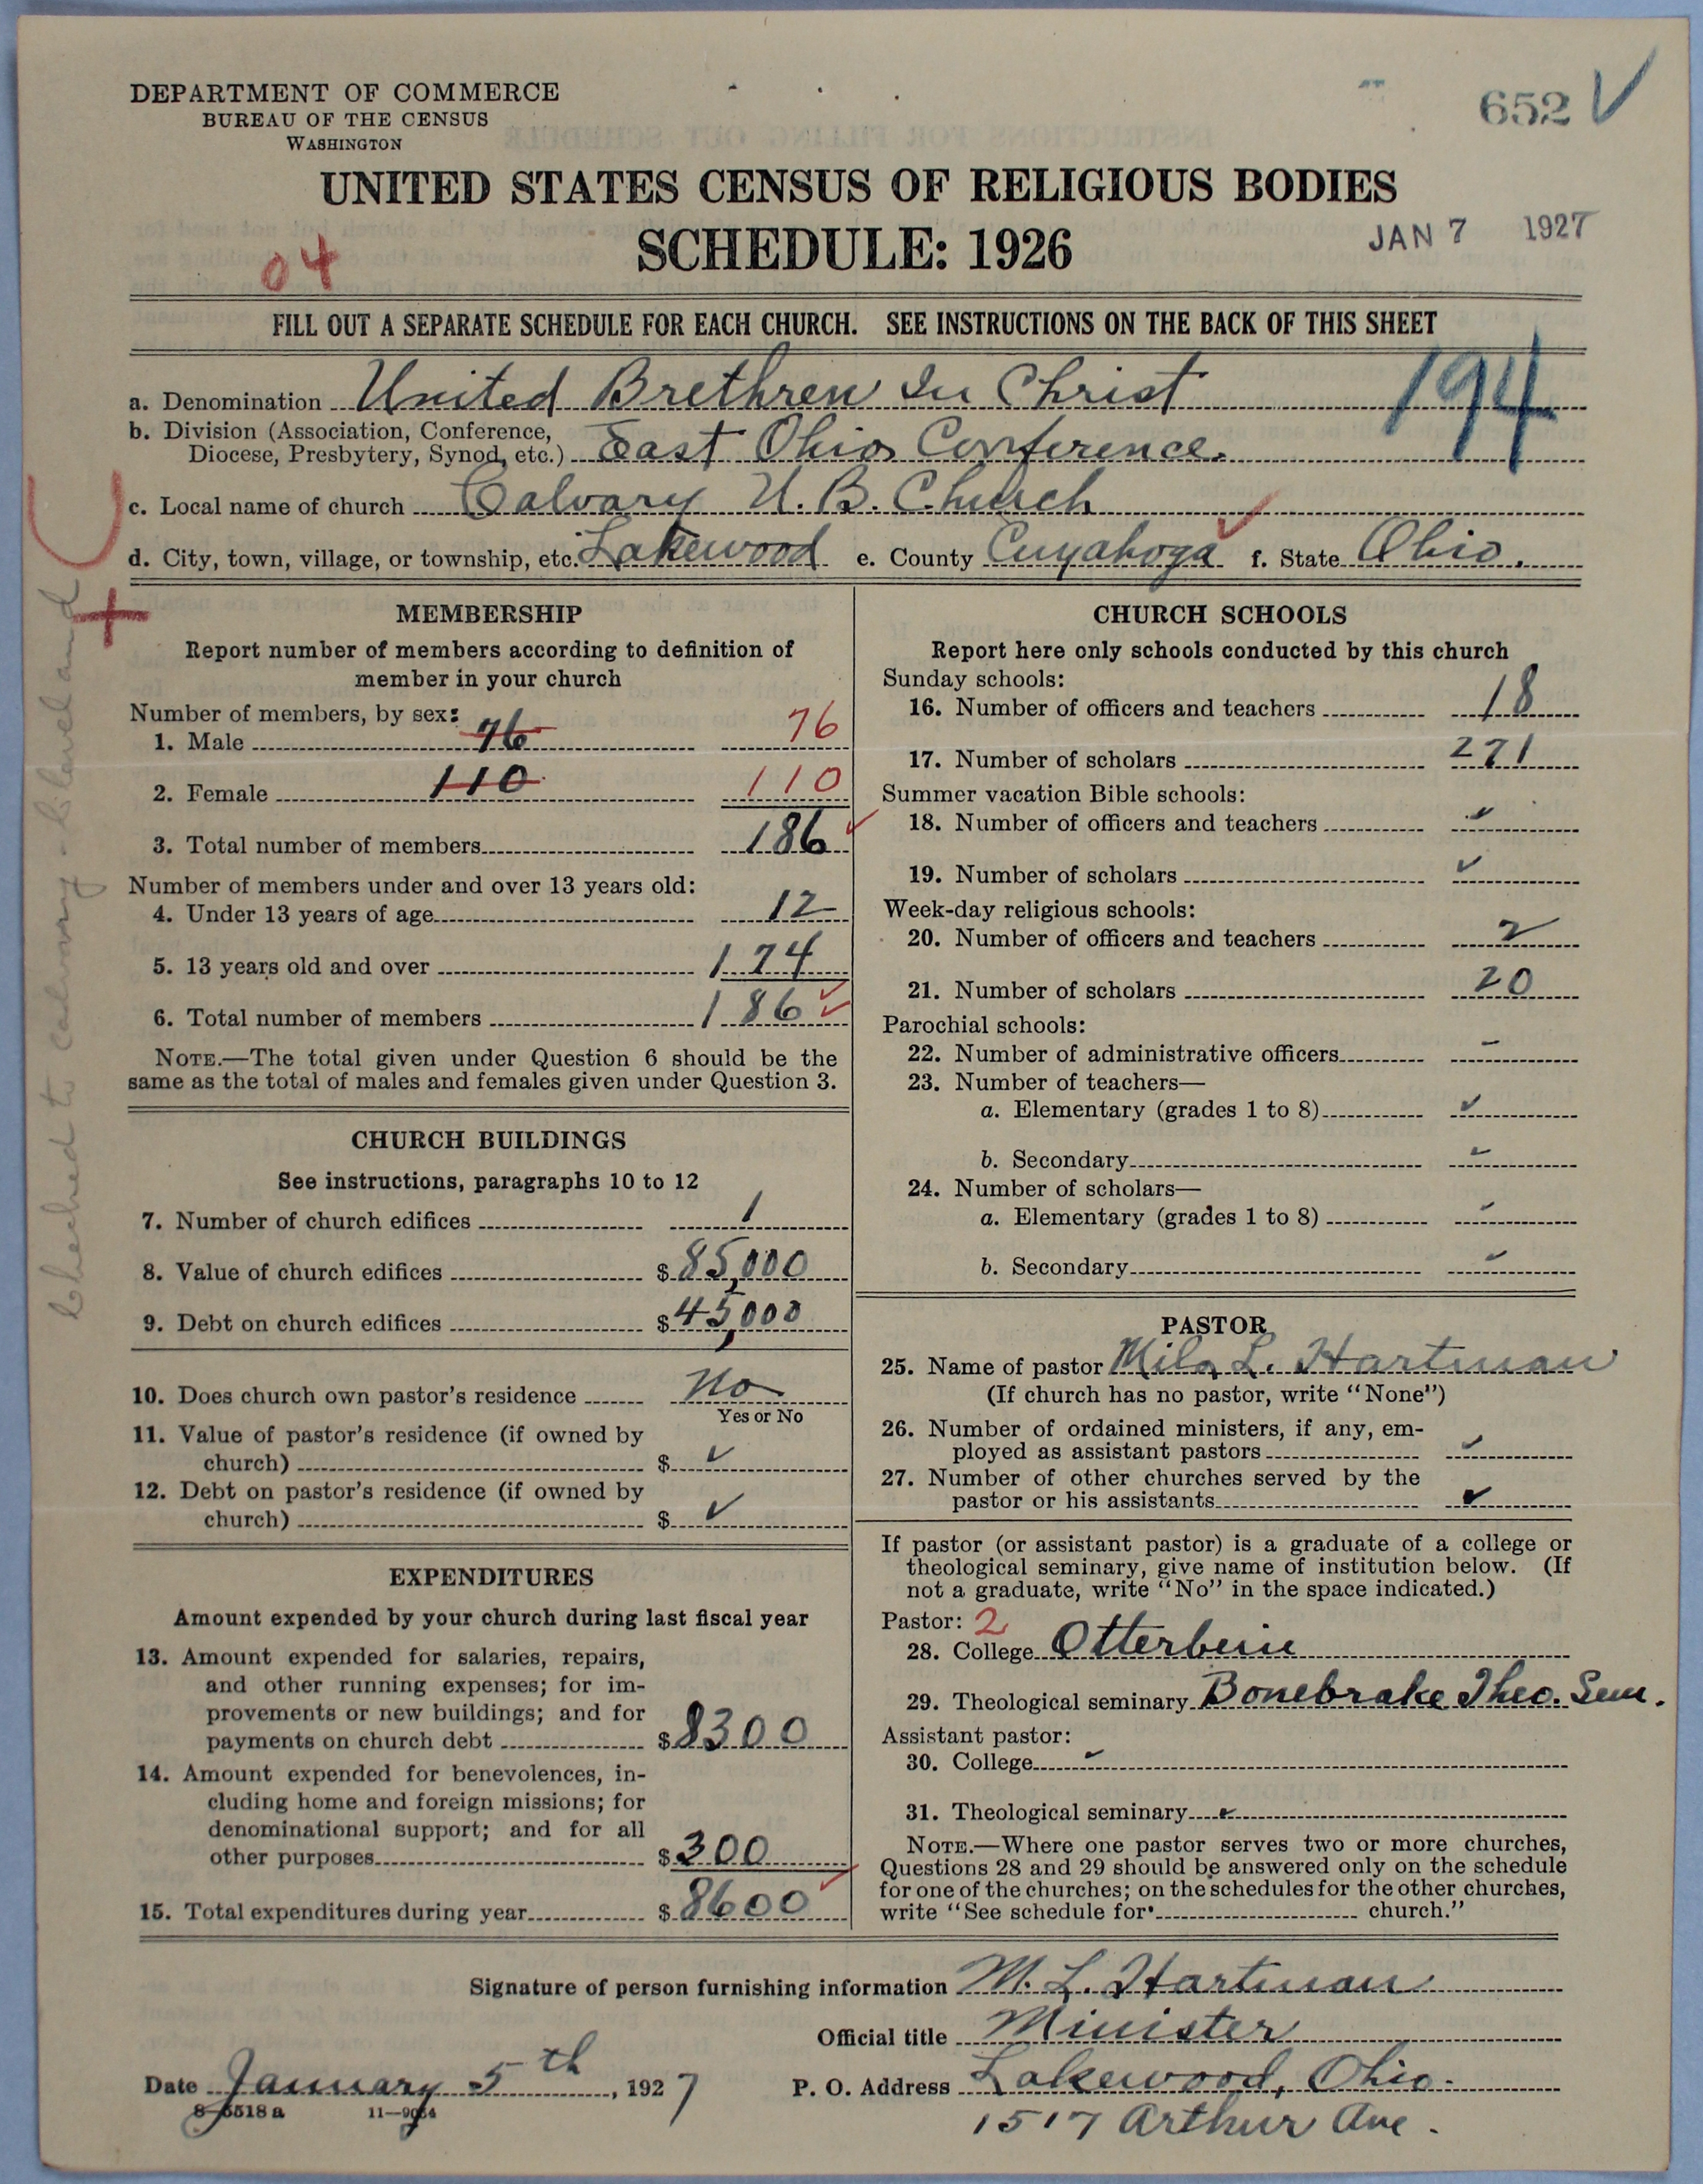 DEPARTMENT OF COMMERCE
BUREAU OF THE CENSUS
WASHINGTON
652 ✓
UNITED STATES CENSUS OF RELIGIOUS BODIES
SCHEDULE: 1926
JAN 7 1927
04
FILL OUT A SEPARATE SCHEDULE FOR EACH CHURCH. SEE INSTRUCTIONS ON THE BACK OF THIS SHEET
194
a. Denomination United Brethren In Christ
b. Division (Association, Conference,
Diocese, Presbytery, Synod, etc.) East Ohio Conference.
c. Local name of church Calvary U. B. Church
d. City, town, village, or township, etc. Lakewood e. County Cuyahoga f. State Ohio.
Checked to Calvary - Cleveland
MEMBERSHIP
Report number of members according to definition of
member in your church
Number of members, by sex:
1. Male 76 76
2. Female 110 110
3. Total number of members 186 ✓
Number of members under and over 13 years old:
4. Under 13 years of age 12
5. 13 years old and over 174
6. Total number of members 186 ✓
NOTE.—The total given under Question 6 should be the
same as the total of males and females given under Question 3.
CHURCH BUILDINGS
See instructions, paragraphs 10 to 12
7. Number of church edifices 1
8. Value of church edifices $ 85,000
9. Debt on church edifices $ 45,000
10. Does church own pastor's residence No
Yes or No
11. Value of pastor's residence (if owned by
church) $ ✓
12. Debt on pastor's residence (if owned by
church) $ ✓
EXPENDITURES
Amount expended by your church during last fiscal year
13. Amount expended for salaries, repairs,
and other running expenses; for im-
provements or new buildings; and for
payments on church debt $ 8300
14. Amount expended for benevolences, in-
cluding home and foreign missions; for
denominational support; and for all
other purposes $ 300
15. Total expenditures during year $ 8600 ✓
CHURCH SCHOOLS
Report here only schools conducted by this church
Sunday schools:
16. Number of officers and teachers 18
17. Number of scholars 271
Summer vacation Bible schools:
18. Number of officers and teachers ✓
19. Number of scholars ✓
Week-day religious schools:
20. Number of officers and teachers 2
21. Number of scholars 20
Parochial schools:
22. Number of administrative officers -
23. Number of teachers—
a. Elementary (grades 1 to 8) ✓
b. Secondary ✓
24. Number of scholars—
a. Elementary (grades 1 to 8) ✓
b. Secondary ✓
PASTOR
25. Name of pastor Milo L. Hartman
(If church has no pastor, write "None")
26. Number of ordained ministers, if any, em-
ployed as assistant pastors ✓
27. Number of other churches served by the
pastor or his assistants ✓
If pastor (or assistant pastor) is a graduate of a college or
theological seminary, give name of institution below. (If
not a graduate, write "No" in the space indicated.)
Pastor: 2
28. College Otterbein
29. Theological seminary Bonebrake Theo. Sem.
Assistant pastor:
30. College ✓
31. Theological seminary ✓
NOTE.—Where one pastor serves two or more churches,
Questions 28 and 29 should be answered only on the schedule
for one of the churches; on the schedules for the other churches,
write "See schedule for church."
Signature of person furnishing information M. L. Hartman
Official title Minister
Date January 5th, 1927
P. O. Address Lakewood, Ohio.
1517 Arthur Ave.
8-5518a 11-9034